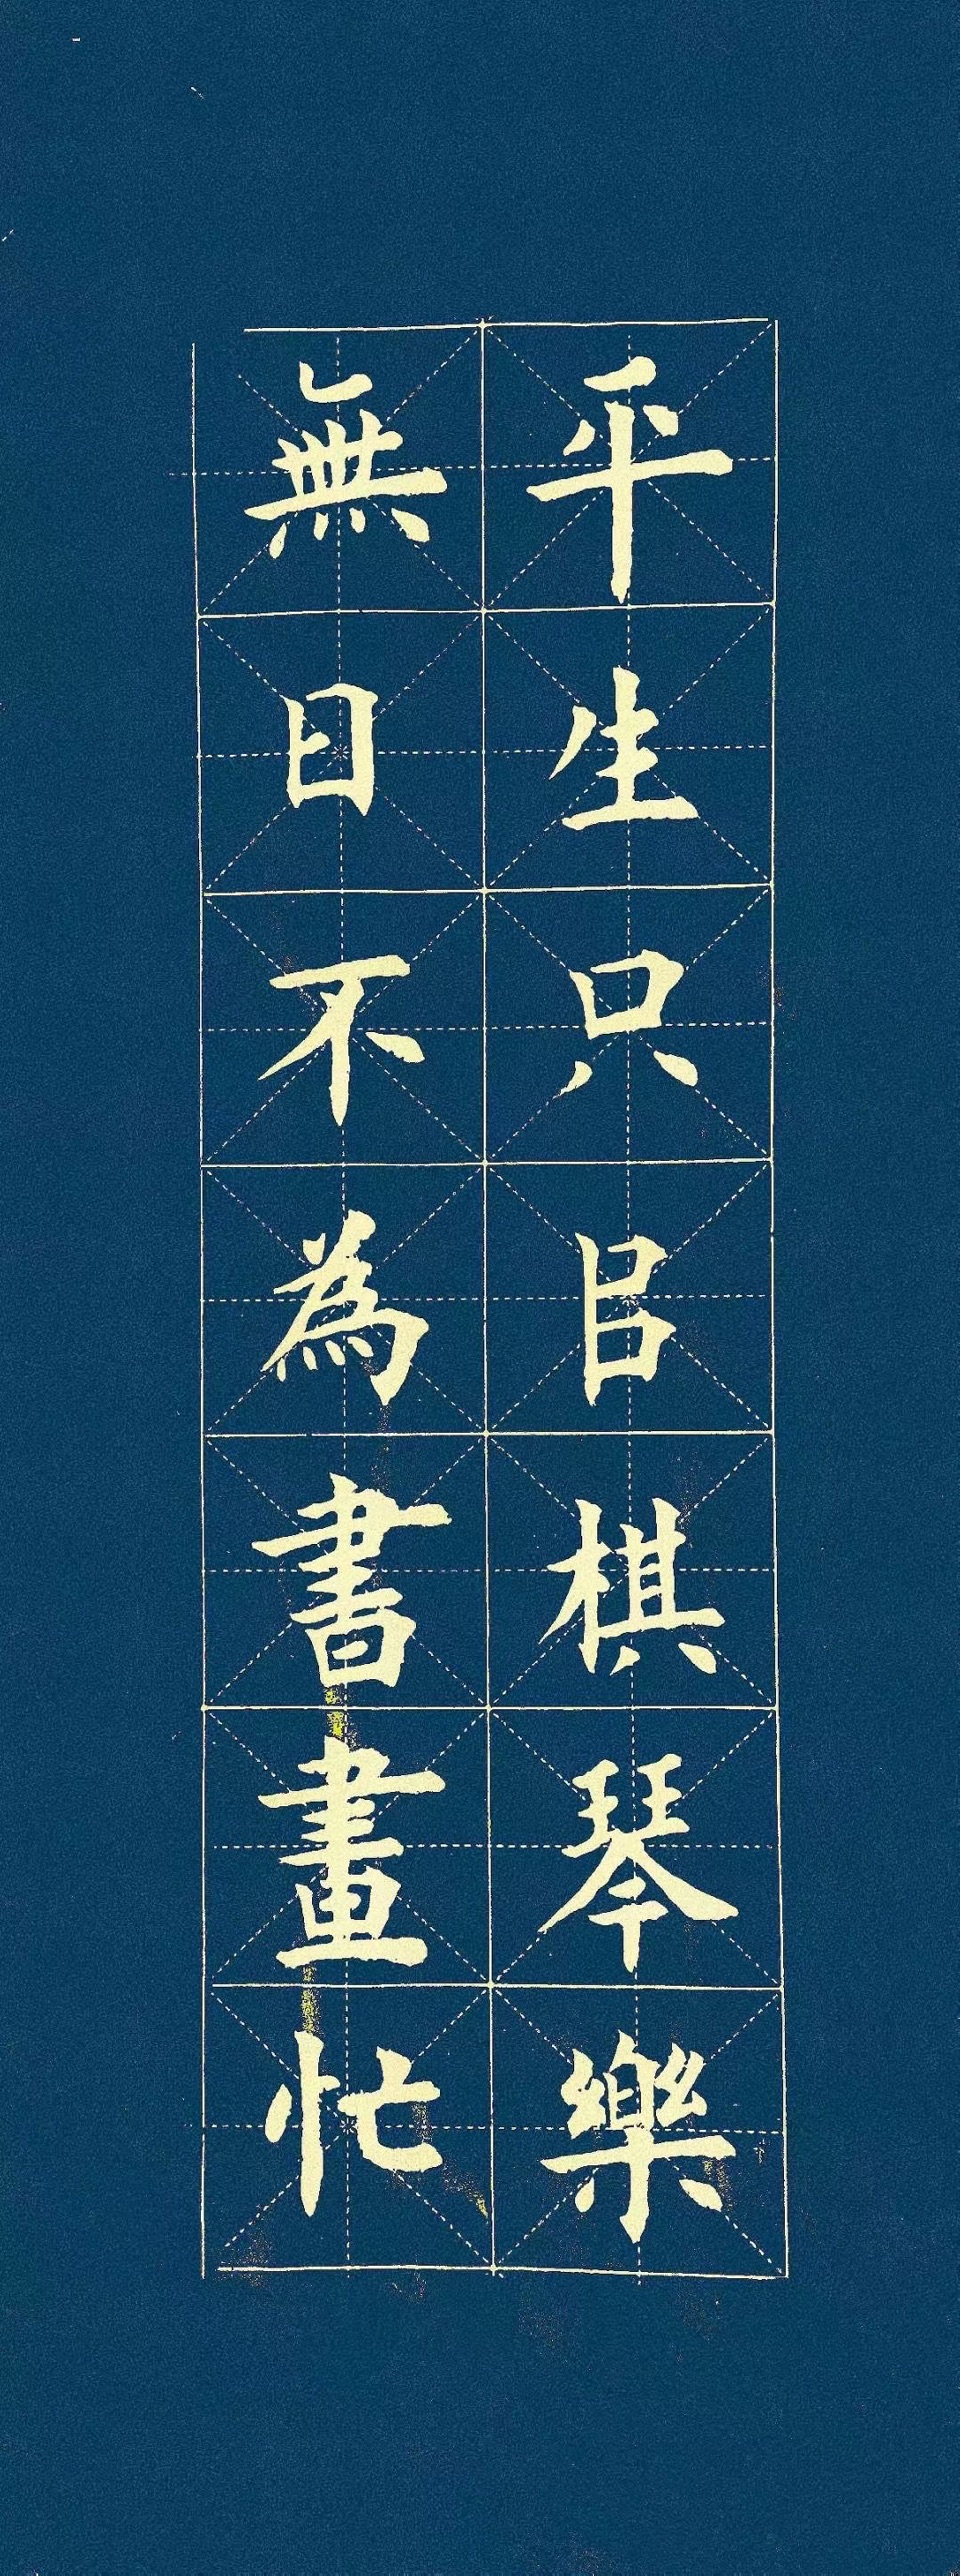 平生只㠯棋琴樂
無日不為書畫忙